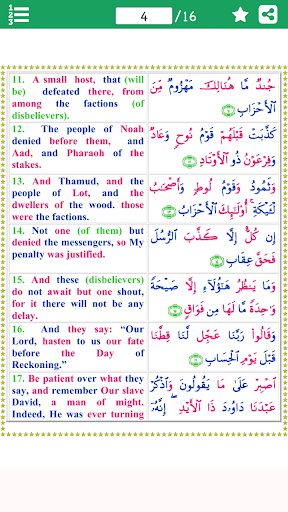 1
2
3
4 /16
11. A small host, that (will
be) defeated there, from
among the factions (of
disbelievers).
جُندٌ مَّا هُنَالِكَ مَهْزُومٌ مِّنَ
ٱلْأَحْزَابِ ١١
12. The people of Noah
denied before them, and
Aad, and Pharaoh of the
stakes.
كَذَّبَتْ قَبْلَهُمْ قَوْمُ نُوحٍ وَعَادٌ
وَفِرْعَوْنُ ذُو ٱلْأَوْتَادِ ١٢
13. And Thamud, and the
people of Lot, and the
dwellers of the wood. those
were the factions.
وَثَمُودُ وَقَوْمُ لُوطٍ وَأَصْحَٰبُ
لْـَٔيْكَةِ أُو۟لَٰٓئِكَ ٱلْأَحْزَابُ ١٣
14. Not one (of them) but
denied the messengers, so My
penalty was justified.
إِن كُلٌّ إِلَّا كَذَّبَ ٱلرُّسُلَ
فَحَقَّ عِقَابِ ١٤
15. And these (disbelievers)
do not await but one shout,
for it there will not be any
delay.
وَمَا يَنظُرُ هَٰٓؤُلَآءِ إِلَّا صَيْحَةً
وَٰحِدَةً مَّا لَهَا مِن فَوَاقٍ ١٥
16. And they say: “Our
Lord, hasten to us our fate
before the Day of
Reckoning.”
وَقَالُوا۟ رَبَّنَا عَجِّل لَّنَا قِطَّنَا
قَبْلَ يَوْمِ ٱلْحِسَابِ ١٦
17. Be patient over what they
say, and remember Our slave
David, a man of might.
Indeed, He was ever turning
ٱصْبِرْ عَلَىٰ مَا يَقُولُونَ وَٱذْكُرْ
عَبْدَنَا دَاوُۥدَ ذَا ٱلْأَيْدِ ۖ إِنَّهُۥٓ